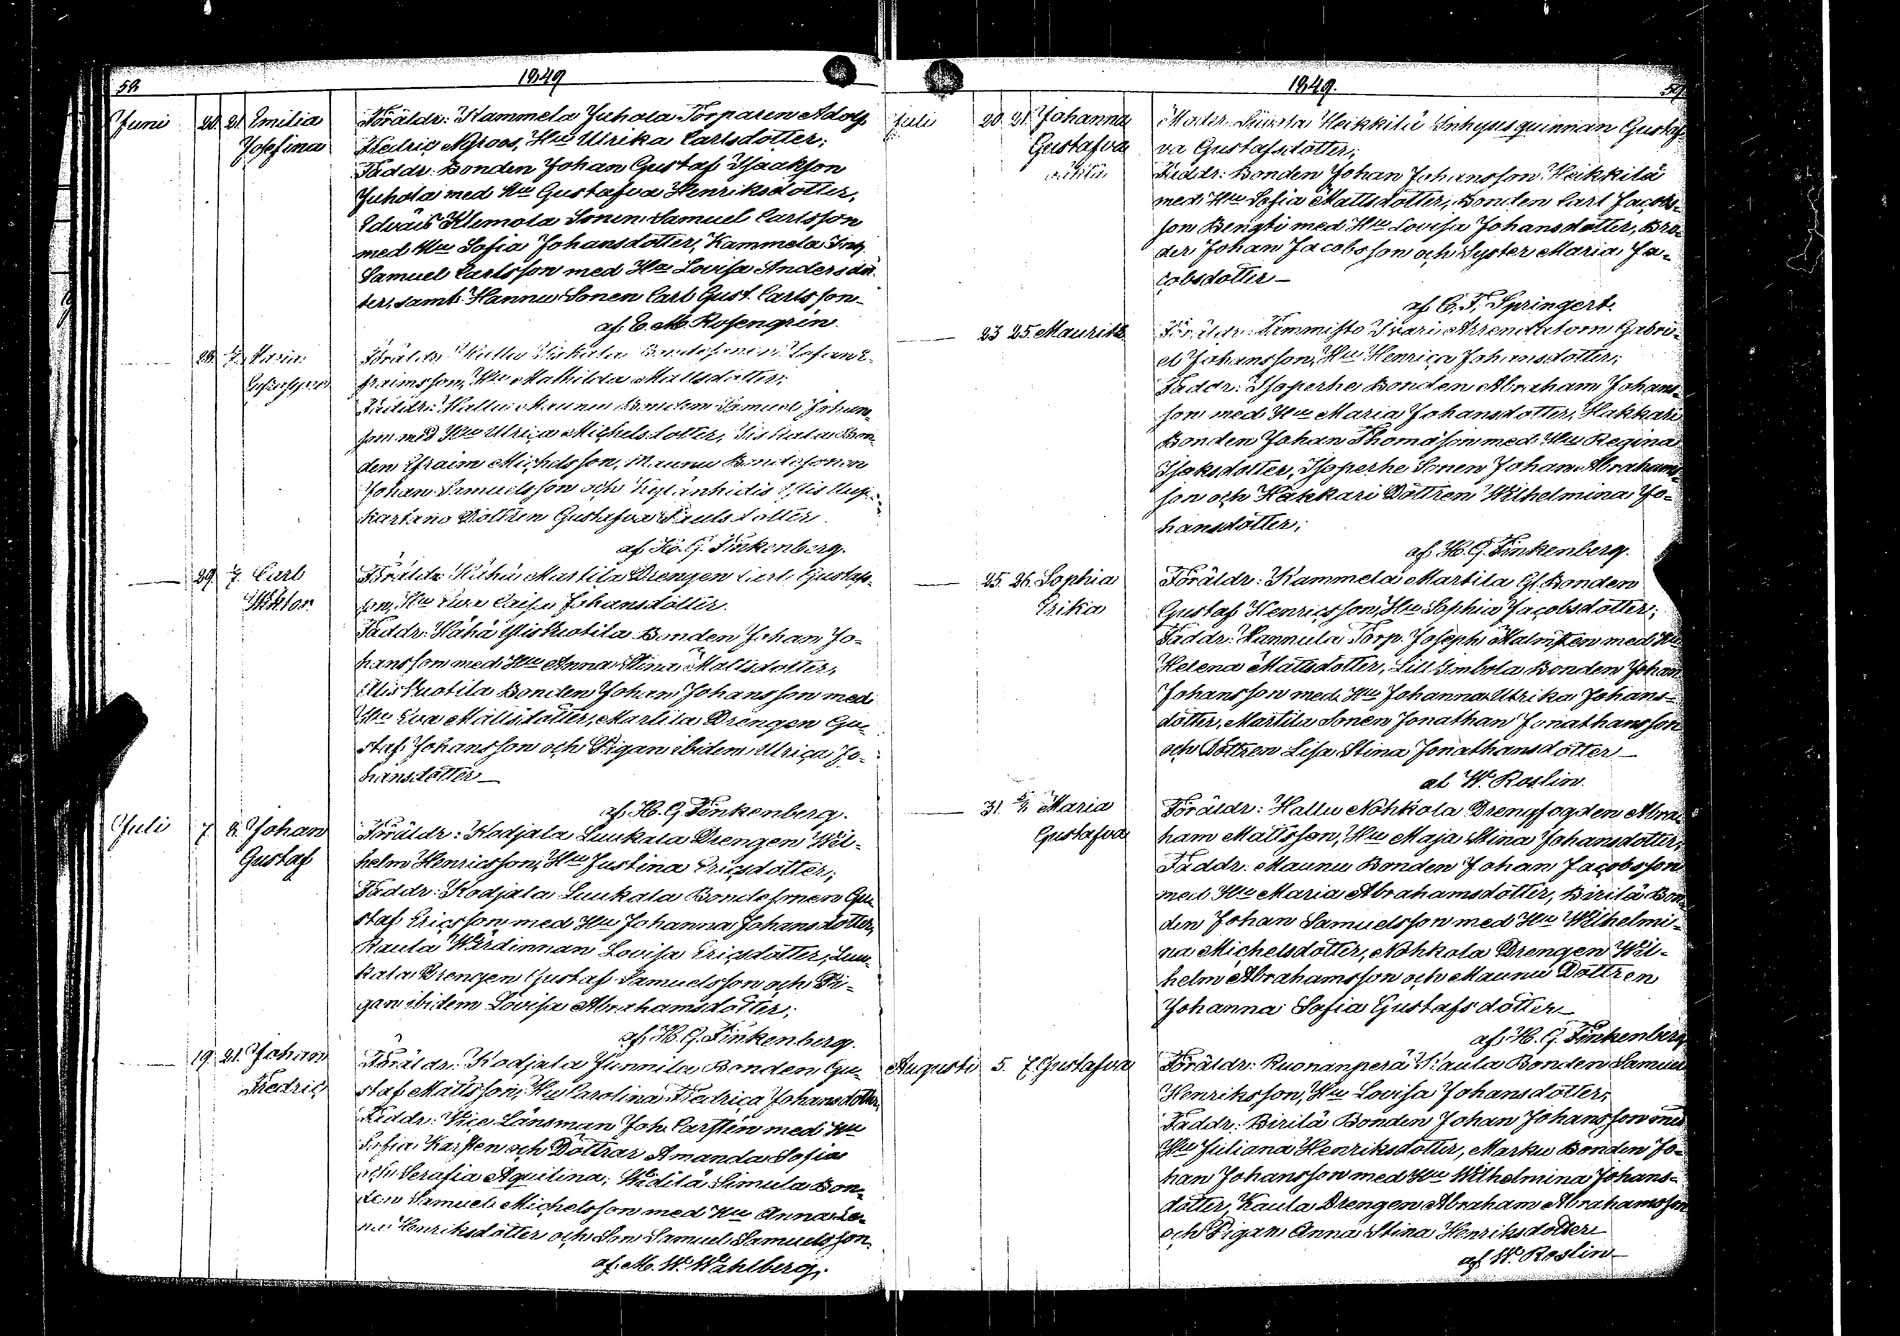 58
1849
Juni 20. 21. Emilia Josefina
Föräldr: Kammela Juhola Torparen Adolf
Fredric Nyroos, Hru Ulrika Carlsdotter;
Faddr: Bonden Johan Gustaf Isaaksson
Juhola med Hru Gustafva Henriksdotter,
Edväis Klemola Sonen Samuel Carlsson
med Hru Sofia Johansdotter, Kammela
Samuel Carlsson med Hru Lovisa Andersdot-
ter, samt Hannu Sonen Carl Gust. Carlsson
af C. M. Rosengrén.
Maria
Föräldr: Bondesonen Johan E-
fraimsson, Hru Mathilda Mattsdotter;
Faddr: Hallu Maunu Bonden Samuel Johans-
son med Hru Ulrica Michelsdotter, Bon-
den Efraim Michelsson, Maunu Bondesonen
Johan Samuelsson och
kartano Dottren Gustafva Paulsdotter.
af H. G. Finkenberg.
29. 1/7. Carl Wiktor
Föräldr: Hähä Martila Drengen Carl Gustafs-
son, Hru Eva Caisa Johansdotter.
Faddr: Hähä Ylis Ruotila Bonden Johan Jo-
hansson med Hru Anna Stina Mattsdotter,
Alis Ruotila Bonden Johan Johansson med
Hru Eva Mattsdotter, Martila Drengen Gu-
staf Johansson och Pigan ibidem Ulrica Jo-
hansdotter
af H. G. Finkenberg.
Juli 7 8. Johan Gustaf
Föräldr: Kodjala Luukala Drengen Wil-
helm Henricsson, Hru Justina Ericsdotter;
Faddr: Kodjala Luukala Bondesonen Gu-
staf Ericsson med Hru Johanna Johansdotter,
Kaula Wärdinnan Lovisa Ericsdotter, Luu-
kala Drengen Gustaf Samuelsson och Pi-
gan ibidem Lovisa Abrahamsdotter;
af H. G. Finkenberg.
19. 21. Johan Fredric
Föräldr: Kodjala Junnila Bonden Gu-
staf Mattsson, Hru Carolina Fredrica Johansdotter,
Faddr: Vice Länsman Joh. Carstén med Hru
Sofia Karsten och Döttrar Amanda Sofia
och Serafia Aquilina, Widilä Simula Bon-
den Samuel Michelsson med Hru Anna Le-
na Henriksdotter och Son Samuel Samuelsson.
af M. W. Wahlberg;
1849.
59
Juli 20. 21. Johanna Gustafva
Moder: Heikkilä Inhysesquinnan Gustaf-
va Gustafsdotter;
Faddr: Bonden Johan Johansson Heikkilä
med Hru Sofia Mattsdotter, Bonden Carl Jacobs-
son Bengti med Hru Lovisa Johansdotter, Bro-
der Johan Jacobsson och Syster Maria Ja-
cobsdotter
af C. F. Springert.
23. 25. Mauritz
Föräldr: Tammisto Isaari Arrendatorn Gabri-
el Johansson, Hru Henrica Johansdotter;
Faddr: Isoperhe Bonden Abraham Johans-
son med Hru Maria Johansdotter, Hakkari
Bonden Johan Thomasson med Hru Regina
Isaksdotter, Isoperhe Sonen Johan Abrahams-
son och Hakkari Dottren Wilhelmina Jo-
hansdotter;
af H. G. Finkenberg.
25. 26. Sophia Erika
Föräldr: Kammela Martila Gl. Bonden
Gustaf Henricsson, Hru Sophia Jacobsdotter;
Faddr: Hannula Torp. Joseph Malmsten med Hru
Helena Mattsdotter, Lill Ombola Bonden Johan
Johansson med Hru Johanna Ulrika Johans-
dotter, Martila Sonen Jonathan Jonathansson
och Dottren Lisa Stina Jonathansdotter
af W. Roslin.
31. 5/8. Maria Gustafva
Föräldr: Hallu Nohkola Drengfogden Abra-
ham Mattsson, Hru Maja Stina Johansdotter,
Faddr: Maunu Bonden Johan Jacobsson
med Hru Maria Abrahamsdotter, Birilä Bon-
den Johan Samuelsson med Hru Wilhelmi-
na Michelsdotter, Nohkola Drengen Wil-
helm Abrahamsson och Maunu Dottren
Johanna Sofia Gustafsdotter
af H. G. Finkenberg
Augusti 5. 7. Gustafva
Föräldr: Ruonanperä Kaula Bonden Samuel
Henriksson, Hru Lovisa Johansdotter;
Faddr: Birilä Bonden Johan Johansson med
Hru Juliana Henriksdotter, Marku Bonden Jo-
han Johansson med Hru Wilhelmina Johans-
dotter, Kaula Drengen Abraham Abrahamsson
och Pigan Anna Stina Henriksdotter
af W. Roslin